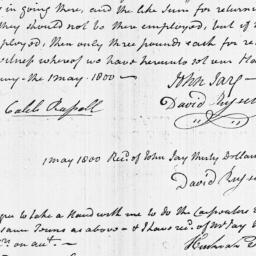 in going there, and the like Sum for return
they should not be there employed, but if
ployed, then only three pounds & each for re
witness whereof we have hereunto set our Ha
1 May 1800 —
John Jay
Caleb Russell
David Russe
1 May 1800 Recd. of John Jay thirty Dollar
David Russe
gree to take a Hand with me to do the Carpenters
same Terms as above - & I have recd. of Mr Jay
on acct. —